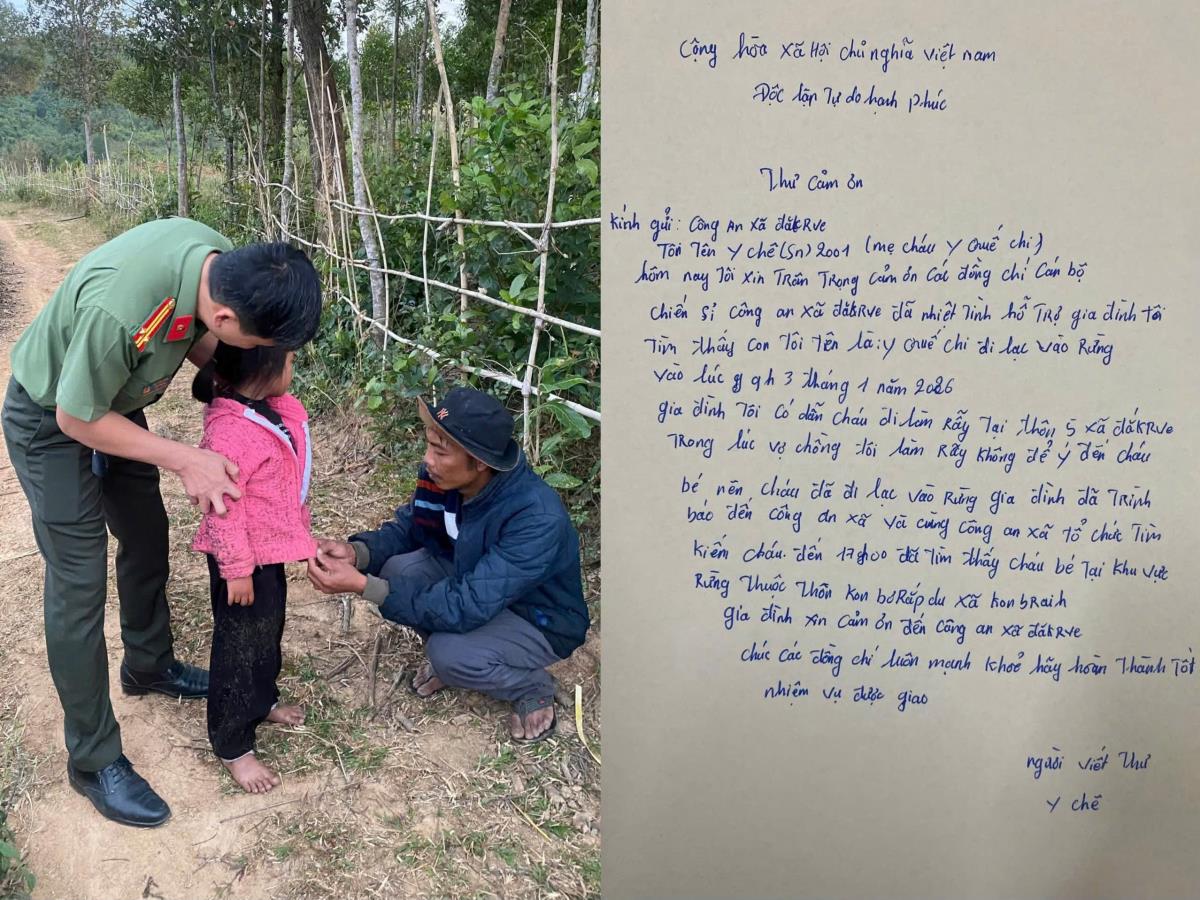 Cộng hòa xã Hội chủ nghĩa Việt nam
Đốc lập Tự do hạnh phúc
Thư cảm ơn
Kính gửi: Công An xã đắkRve
Tôi Tên Y chế (Sn) 2001 (mẹ cháu Y Quế chi)
hôm nay Tôi xin Trân Trọng cảm ơn các đồng chí cán bộ
chiến sỉ công an xã đắkRve đã nhiệt Tình hỗ Trợ gia đình tôi
Tìm thấy con Tôi Tên là: y Quế chi đi lạc vào Rừng
vào lúc 9h 3 tháng 1 năm 2026
gia đình Tôi có dẫn cháu đi làm Rẫy Tại thôn 5 xã đắkRve
Trong lúc vợ chồng tôi làm Rẫy không để ý đến cháu
bé nên cháu đã đi lạc vào Rừng gia đình đã Trình
báo đến công an xã và cùng công an xã tổ chức Tìm
kiếm cháu. đến 17h00 đã Tìm thấy cháu bé Tại khu vực
Rừng thuộc thôn kon bơRáp du xã konbRaih
gia đình xin cảm ơn đến công an xã đắkRve
chúc các đồng chí luôn mạnh khoẻ hãy hoàn Thành Tốt
nhiệm vụ được giao
người viết Thư
Y chế